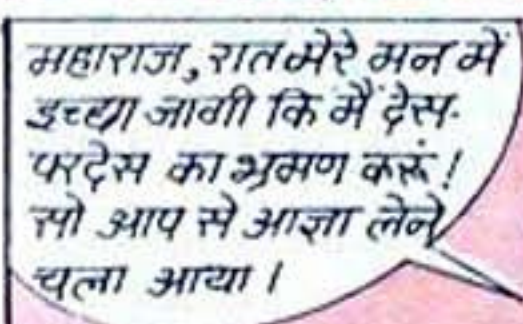 महाराज, रात मेरे मन में
इच्छा जागी कि मैं देस-
परदेस का भ्रमण करूं!
सो आप से आज्ञा लेने
चला आया।